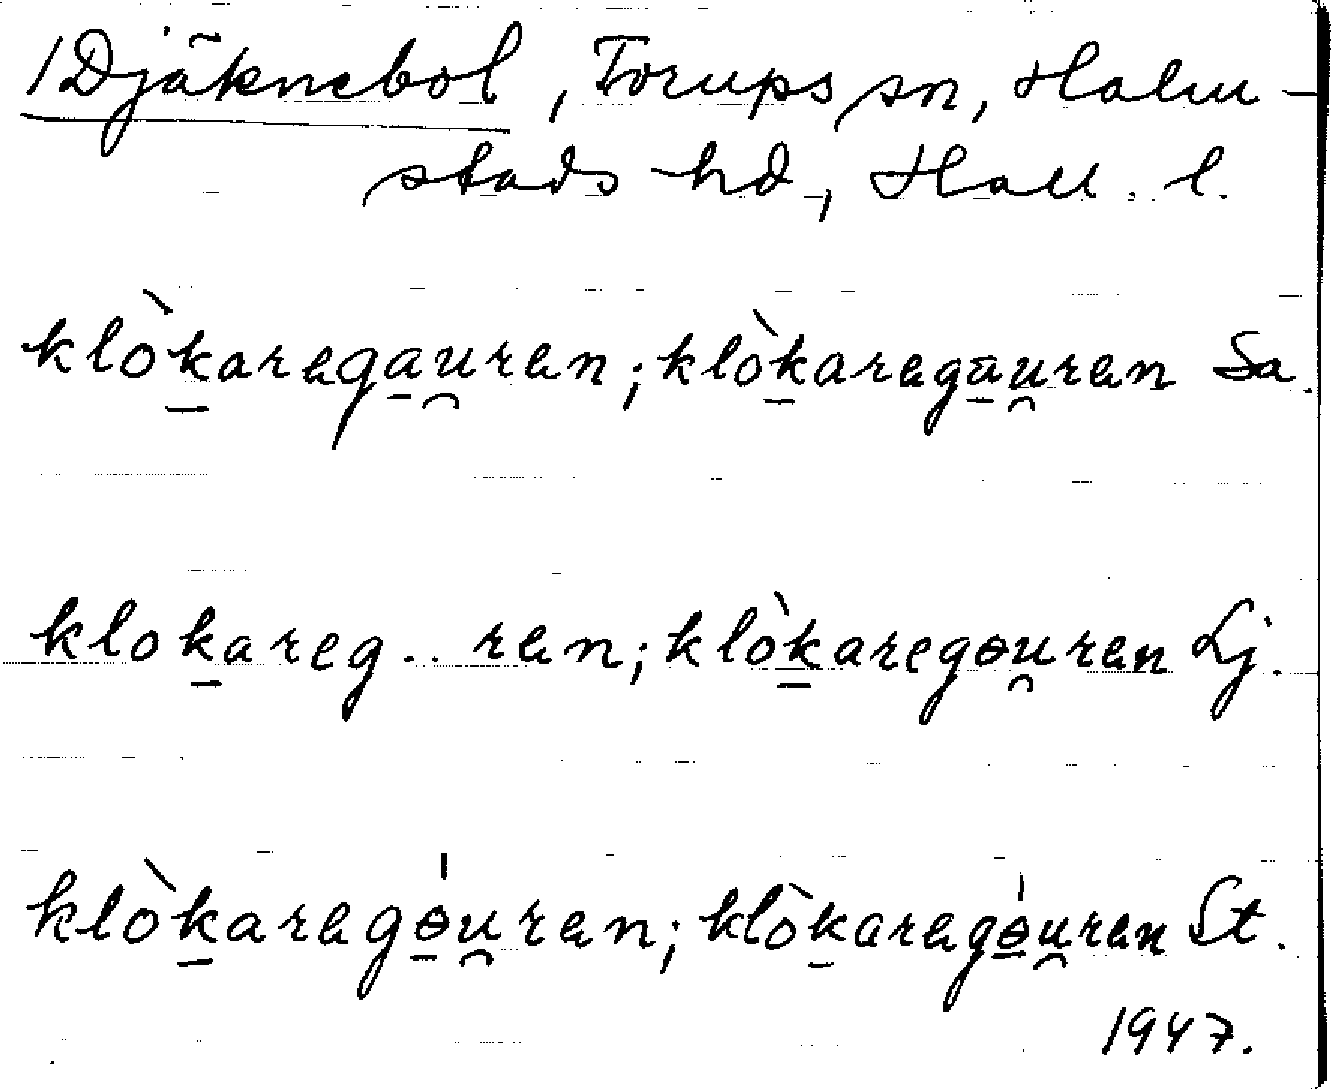 /Djäknebol, Torups sn, Halm-
stads hd, Hall. l.
klòk̲arega̲u̯ren; klòk̲arega̲u̯ren Sa.
klok̲areg.. ren; klòk̲aregɵu̯ren Lj.
klòk̲aregɵ̲́u̯ren; klòk̲aregɵ̲́u̯ren St.
1947.